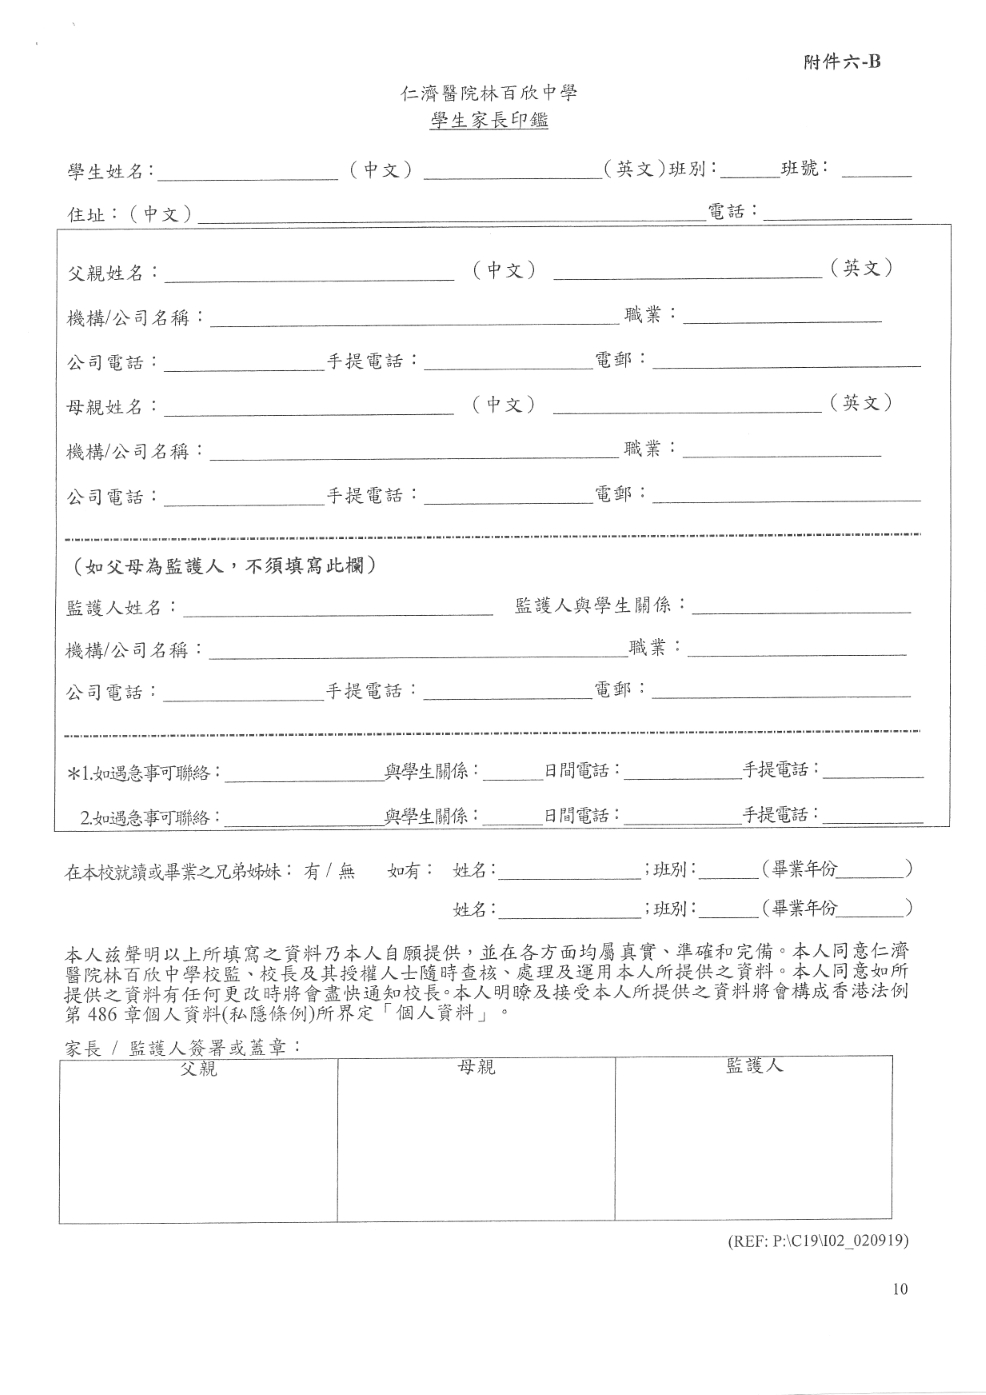 附件六-B
仁濟醫院林百欣中學
學生家長印鑑
學生姓名：__________________（中文）__________________（英文）班別：______班號：_______
住址：（中文）___________________________________________________電話：_______________
父親姓名：_____________________________（中文）___________________________（英文）
機構/公司名稱：_________________________________________職業：____________________
公司電話：________________手提電話：_________________電郵：___________________________
母親姓名：_____________________________（中文）___________________________（英文）
機構/公司名稱：_________________________________________職業：____________________
公司電話：________________手提電話：_________________電郵：___________________________
（如父母為監護人，不須填寫此欄）
監護人姓名：_______________________________ 監護人與學生關係：______________________
機構/公司名稱：__________________________________________職業：______________________
公司電話：________________手提電話：_________________電郵：__________________________
*1.如遇急事可聯絡：________________與學生關係：______日間電話：____________手提電話：__________
2.如遇急事可聯絡：________________與學生關係：______日間電話：____________手提電話：__________
在本校就讀或畢業之兄弟姊妹：有 / 無 如有： 姓名：______________；班別：______（畢業年份_______）
姓名：______________；班別：______（畢業年份_______）
本人茲聲明以上所填寫之資料乃本人自願提供，並在各方面均屬真實、準確和完備。本人同意仁濟
醫院林百欣中學校監、校長及其授權人士隨時查核、處理及運用本人所提供之資料。本人同意如所
提供之資料有任何更改時將會盡快通知校長。本人明瞭及接受本人所提供之資料將會構成香港法例
第 486 章個人資料(私隱條例)所界定「個人資料」。
家長 / 監護人簽署或蓋章：
父親 母親 監護人
(REF: P:\C19\I02_020919)
10